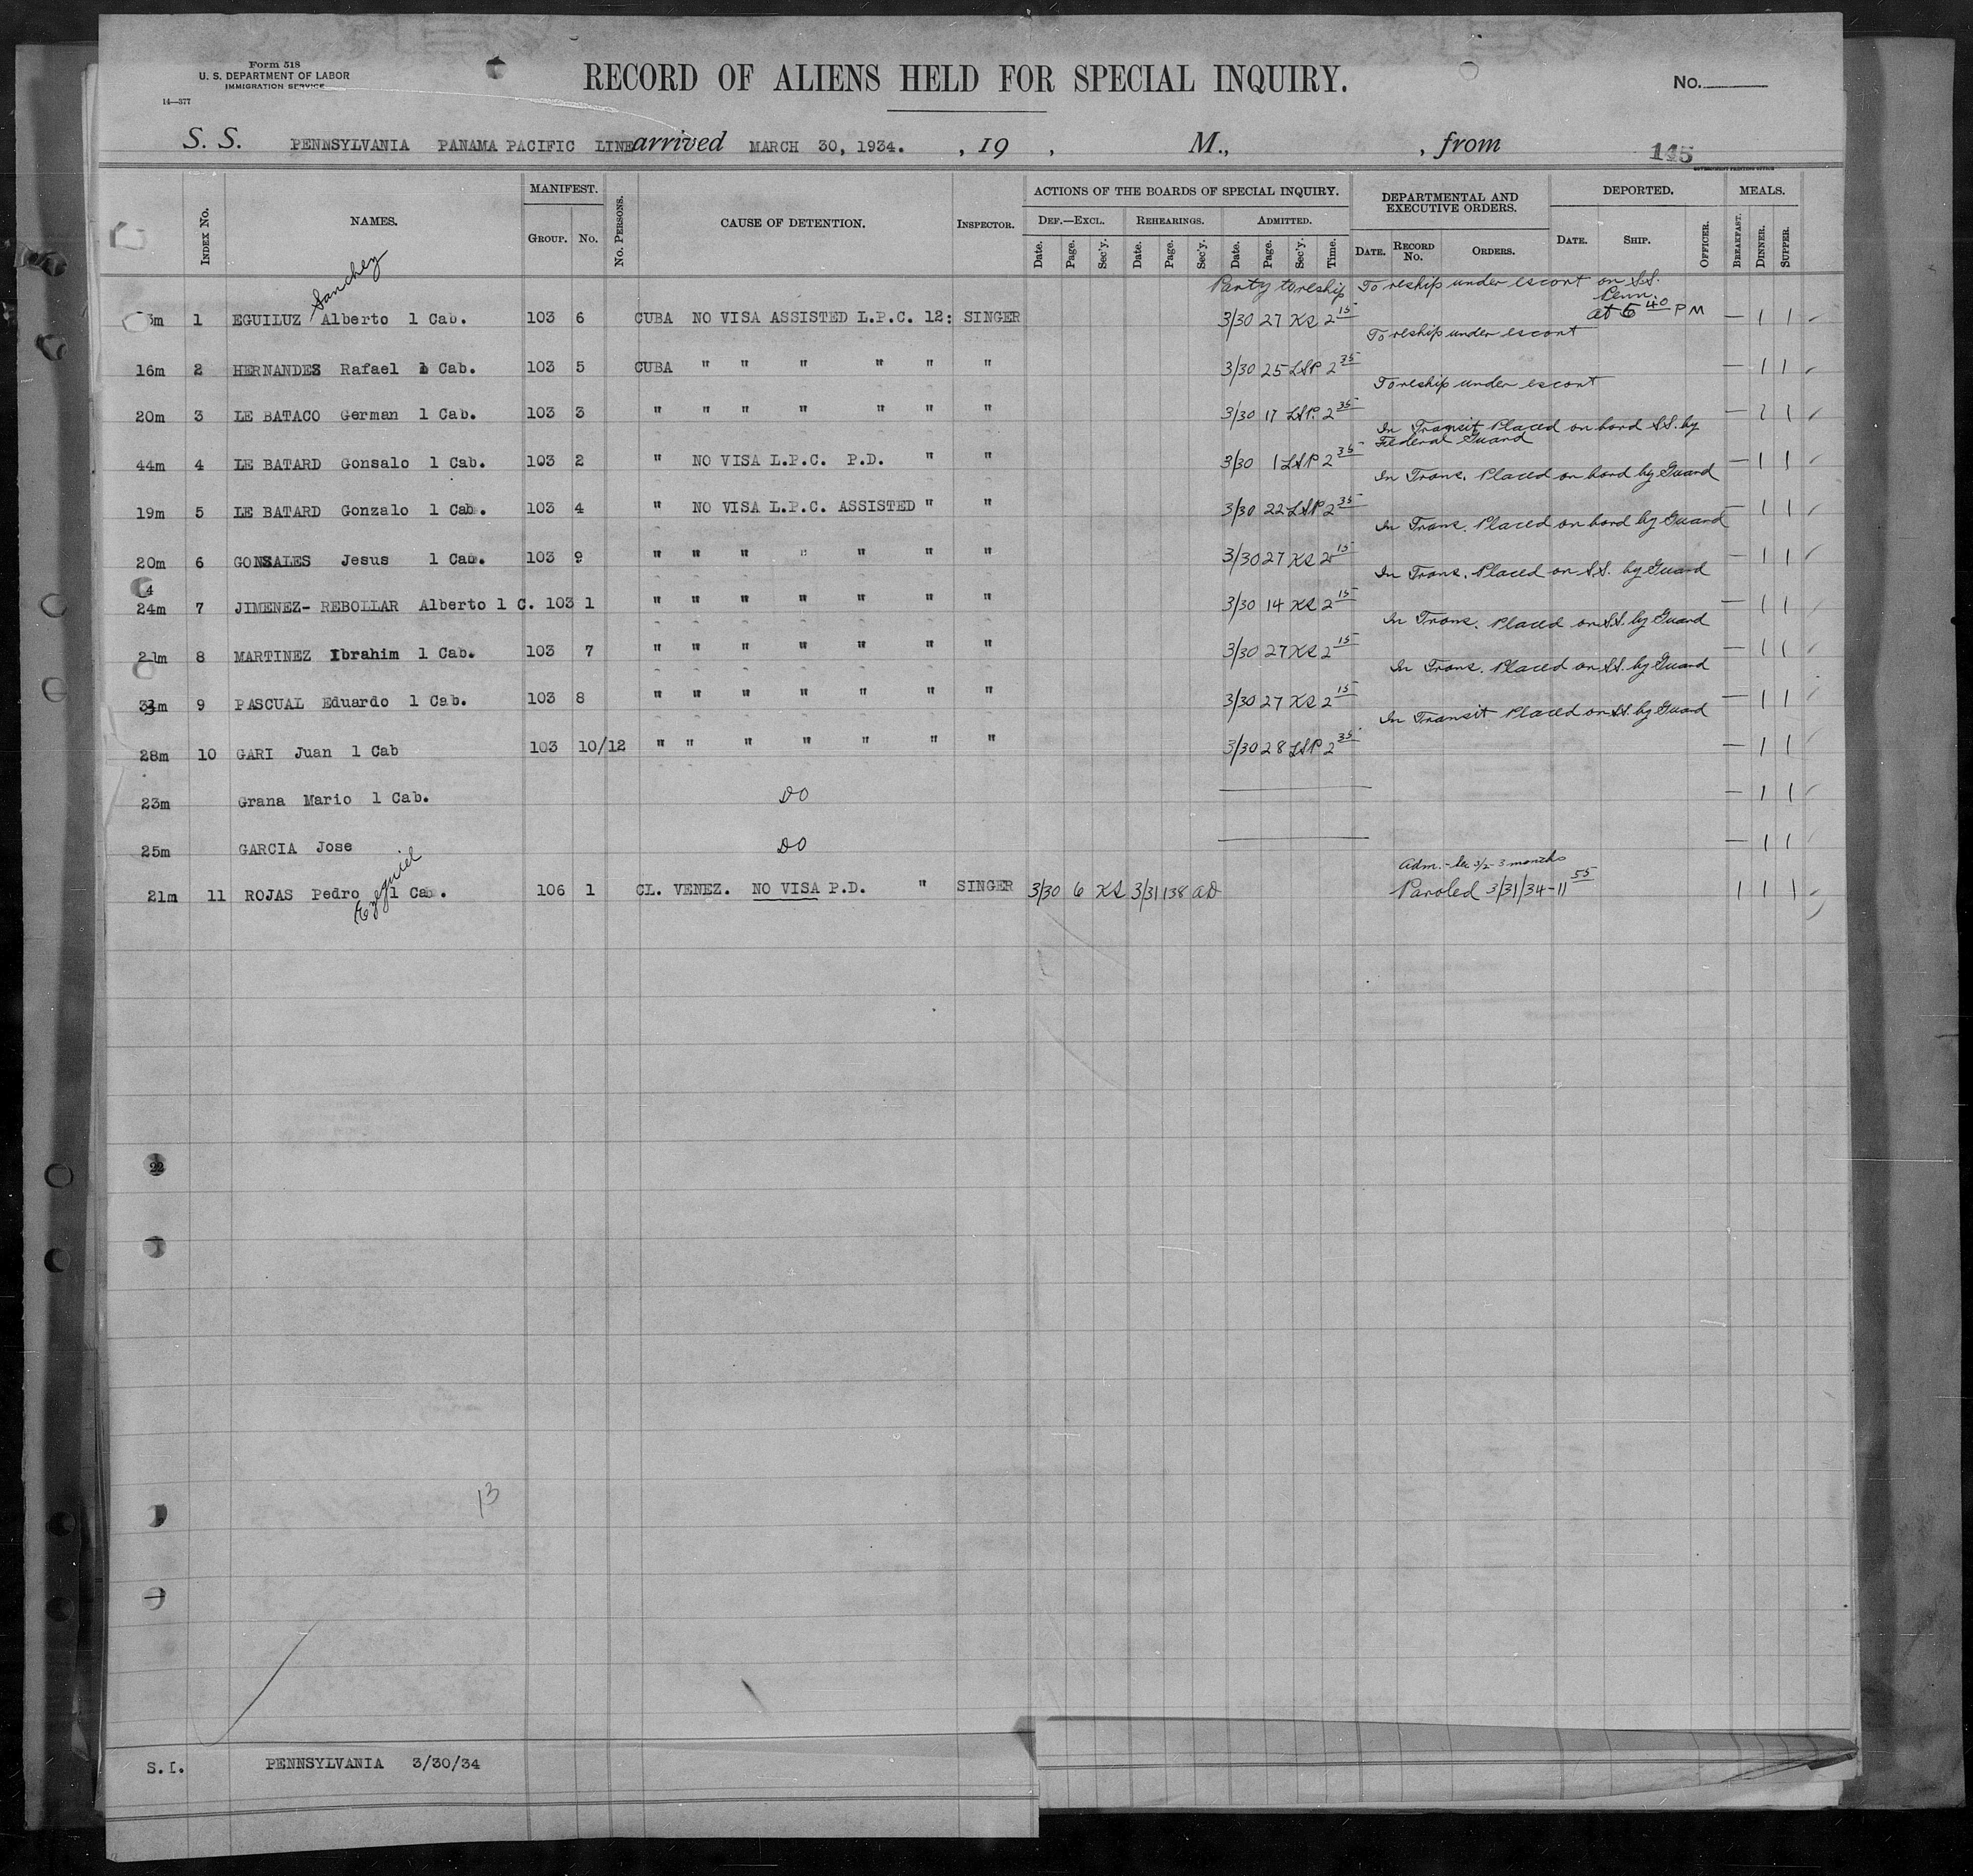 Form 518
U. S. DEPARTMENT OF LABOR
IMMIGRATION SERVICE
14—377
RECORD OF ALIENS HELD FOR SPECIAL INQUIRY.
No.
S. S. PENNSYLVANIA PANAMA PACIFIC LINE arrived MARCH 30, 1934. , 19 , M., , from
145
GOVERNMENT PRINTING OFFICE
INDEX NO. NAMES. MANIFEST. GROUP. NO. NO. PERSONS. CAUSE OF DETENTION. INSPECTOR. ACTIONS OF THE BOARDS OF SPECIAL INQUIRY. DEPARTMENTAL AND EXECUTIVE ORDERS. DEPORTED. MEALS.
DEF.—EXCL. REHEARINGS. ADMITTED.
Date. Page. Sec'y. Date. Page. Sec'y. Date. Page. Sec'y. Time. DATE. RECORD NO. ORDERS. DATE. SHIP. OFFICER. BREAKFAST. DINNER. SUPPER.
Sanchez
Party to reship To reship under escort on S.S. Penn.
3m 1 EGUILUZ Alberto 1 Cab. 103 6 CUBA NO VISA ASSISTED L.P.C. 12: SINGER 3/30 27 KS 2 15 at 5 40 PM — 1 1
To reship under escort
16m 2 HERNANDES Rafael 1 Cab. 103 5 CUBA " " " " " " 3/30 25 LSP 2 35 — 1 1
To reship under escort
20m 3 LE BATACO German 1 Cab. 103 3 " " " " " " " 3/30 17 LSP. 2 35 — 1 1
In Transit Placed on bord S.S. by Federal Guard
44m 4 LE BATARD Gonsalo 1 Cab. 103 2 " NO VISA L.P.C. P.D. " " 3/30 1 LSP 2 35 — 1 1
In Trans. Placed on bord by Guard
19m 5 LE BATARD Gonzalo 1 Cab. 103 4 " NO VISA L.P.C. ASSISTED " " 3/30 22 LSP 2 35 — 1 1
In Trans. Placed on bord by Guard
20m 6 GONSALES Jesus 1 Cab. 103 9 " " " " " " " 3/30 27 KS 2 15 — 1 1
In Trans. Placed on S.S. by Guard
4
24m 7 JIMENEZ- REBOLLAR Alberto 1 C. 103 1 " " " " " " " 3/30 14 KS 2 15 — 1 1
In Trans. Placed on S.S. by Guard
21m 8 MARTINEZ Ibrahim 1 Cab. 103 7 " " " " " " " 3/30 27 KS 2 15 — 1 1
In Trans. Placed on S.S. by Guard
9 PASCUAL Eduardo 1 Cab. 103 8 " " " " " " " 3/30 27 KS 2 15 — 1 1
In Transit Placed on S.S. by Guard
28m 10 GARI Juan 1 Cab 103 10/12 " " " " " " " 3/30 28 LSP 2 35 — 1 1
23m Grana Mario 1 Cab. DO — 1 1
25m GARCIA Jose DO — 1 1
Adm. - 3 months
21m 11 ROJAS Pedro Ezequiel 1 Cab. 106 1 CL. VENEZ. NO VISA P.D. " SINGER 3/30 6 KS 3/31 138 AD Paroled 3/31/34-11 55 1 1 1
22
13
S.I. PENNSYLVANIA 3/30/34